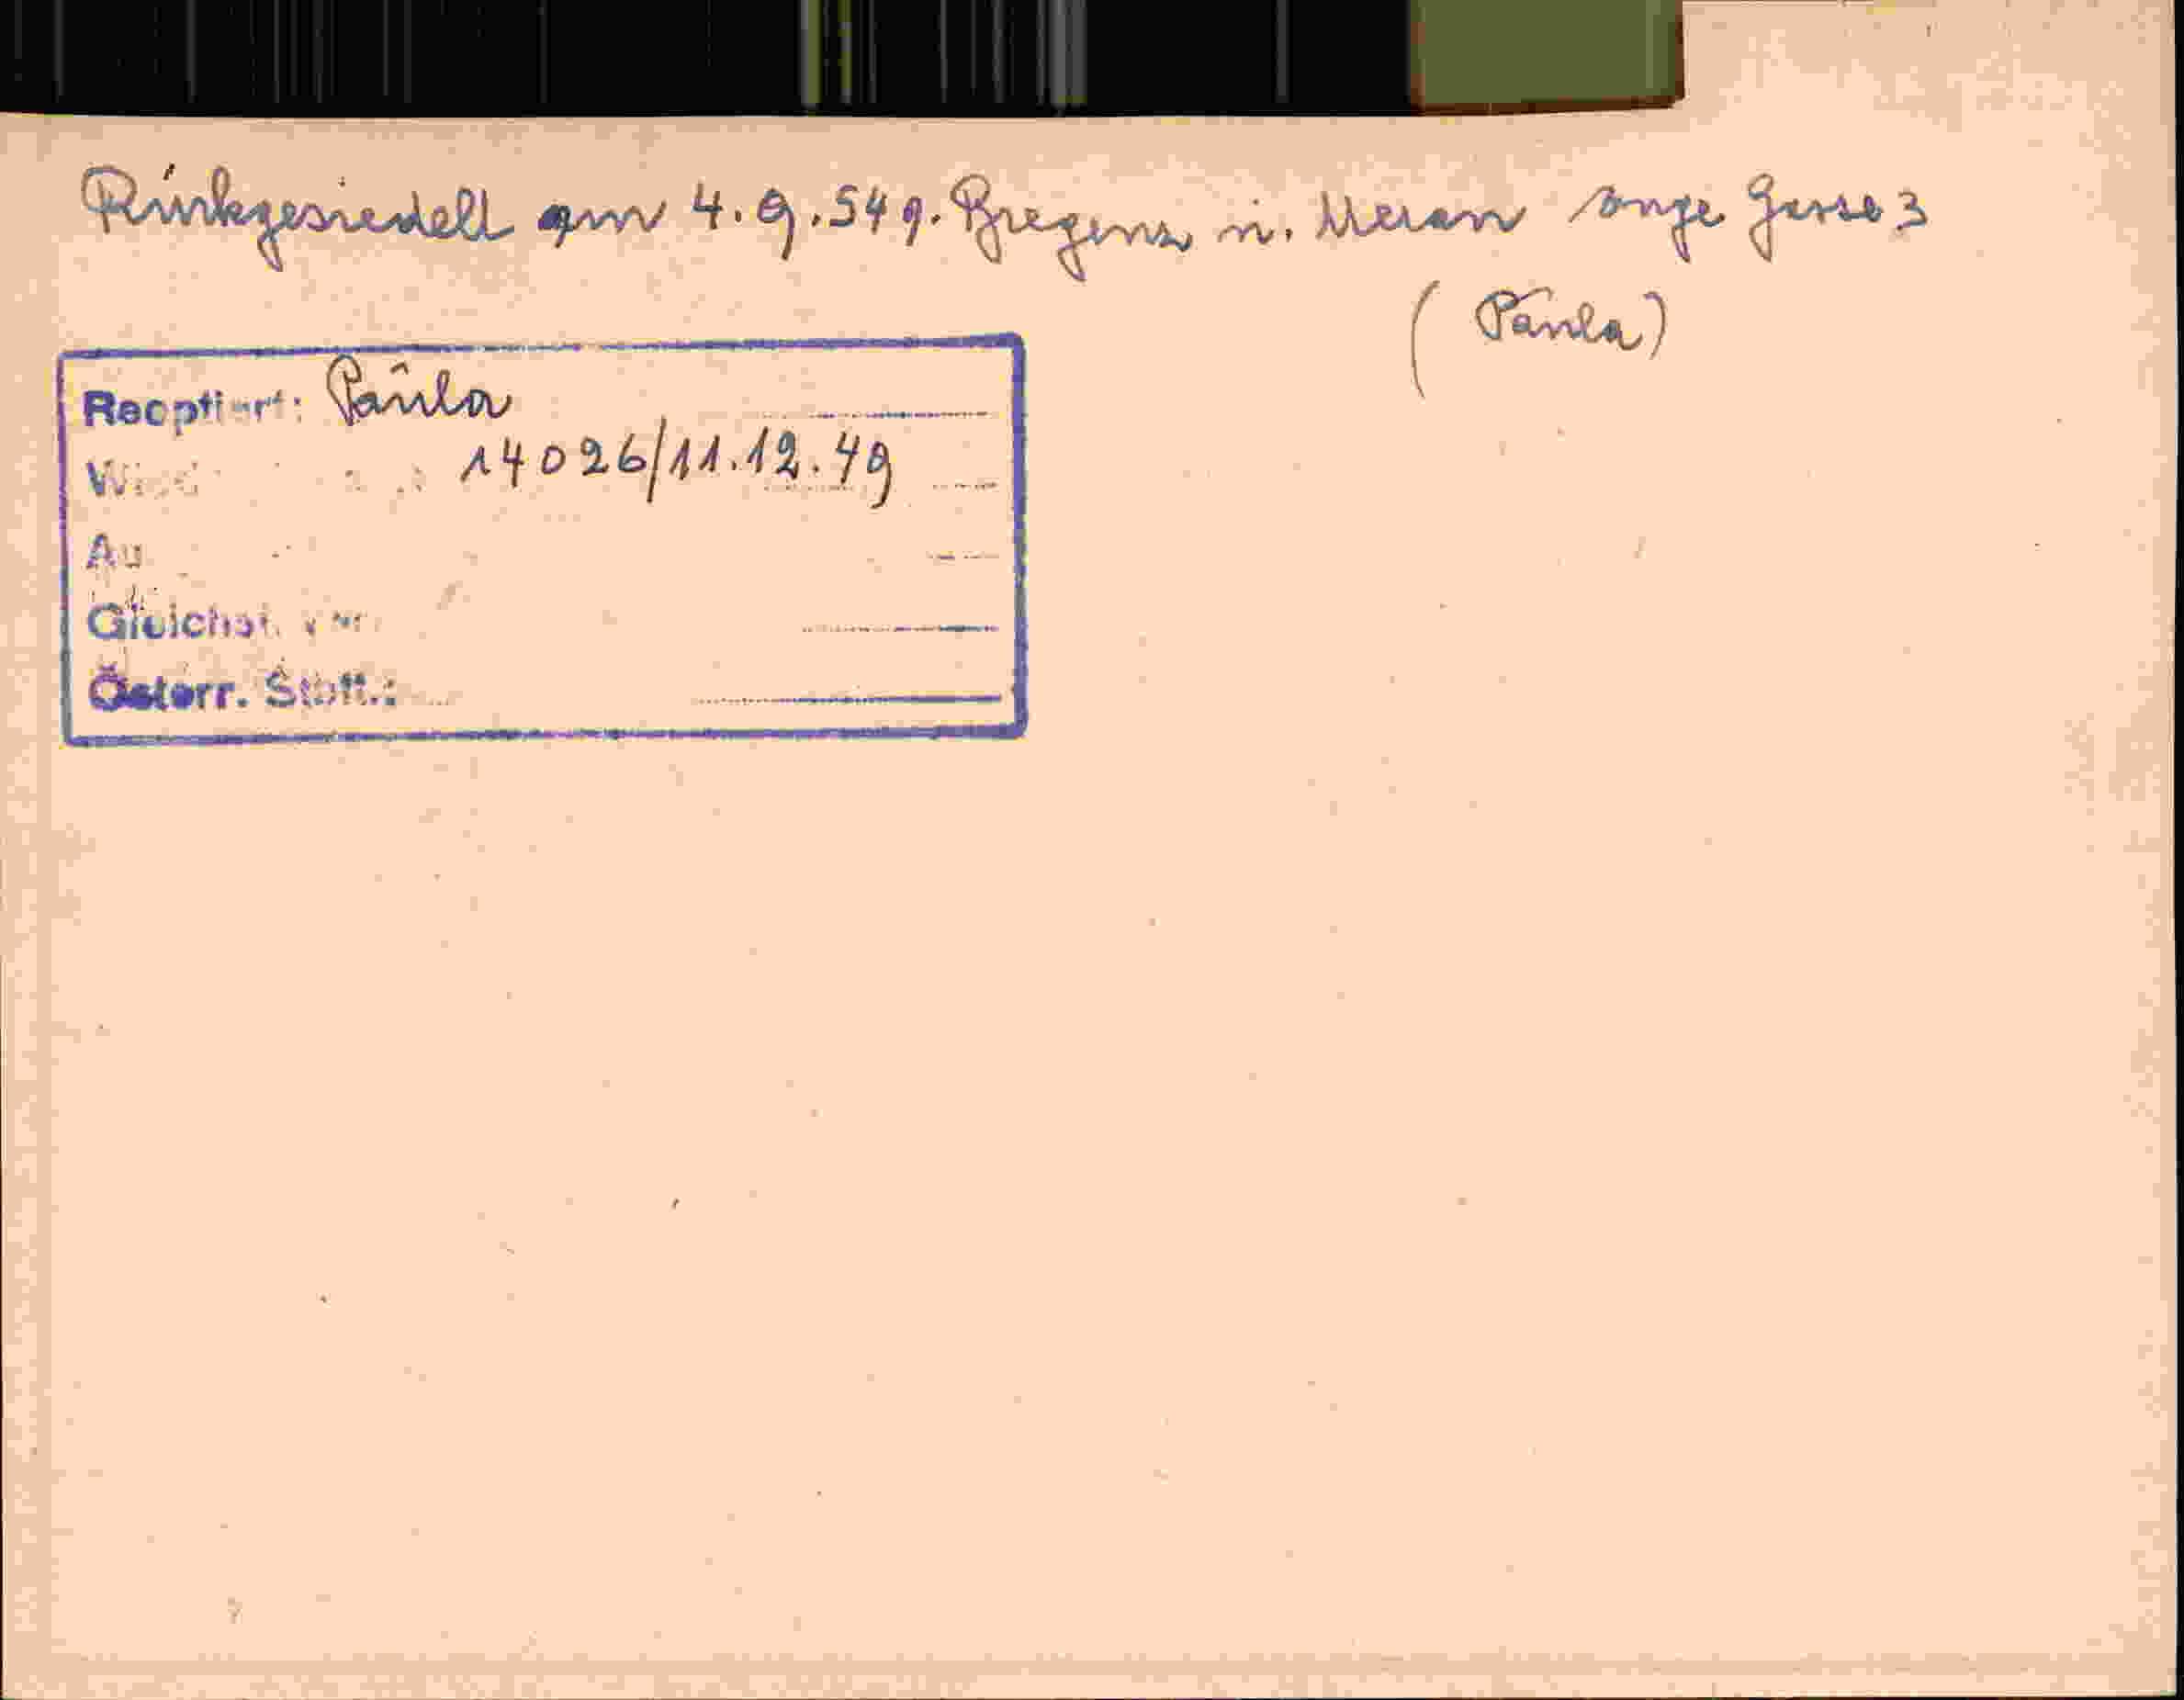 Rückgesiedelt am 4.9.54 v. Bregenz n. Meran enge Gasse 3
(Paula)
Reoptiert: Paula
14026/11.12.49
Österr. Stbft.: